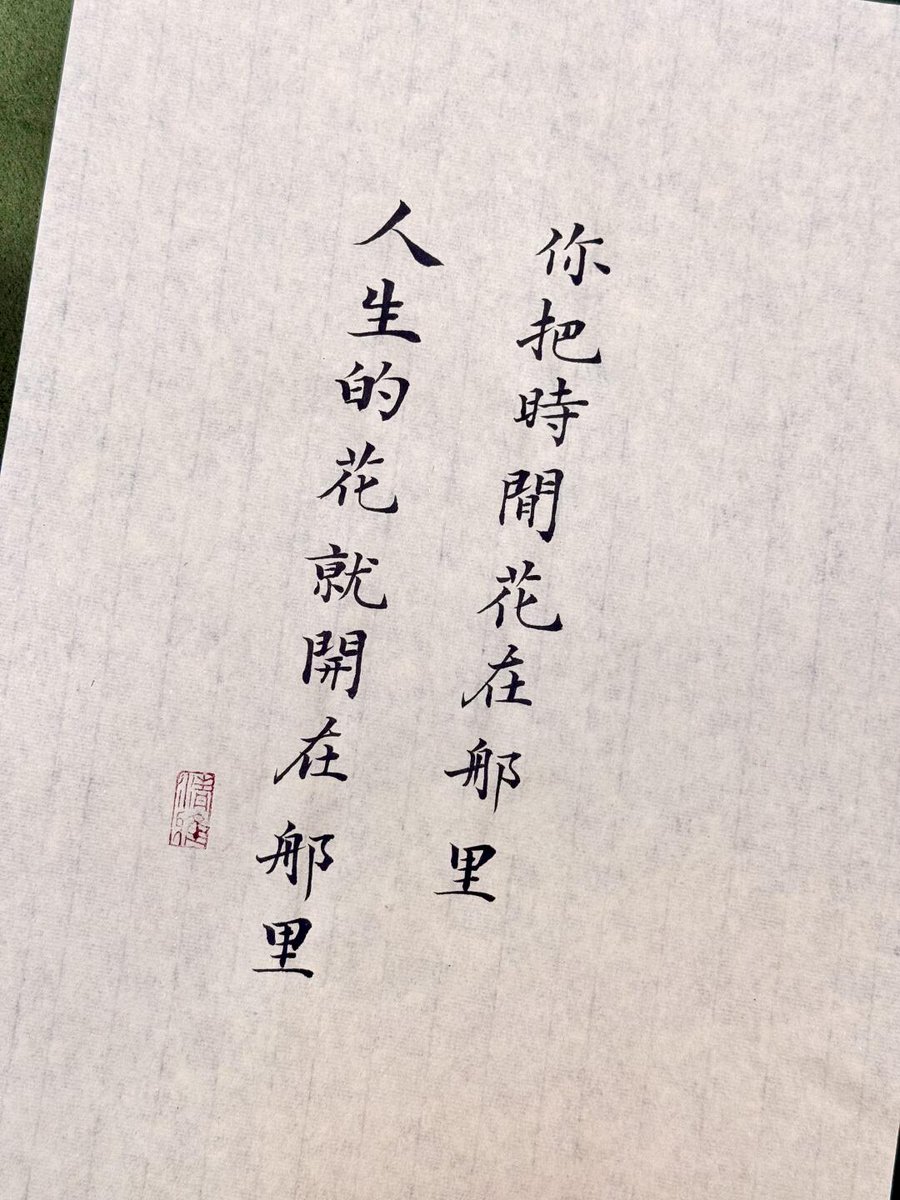 你把時間花在那里
人生的花就開在那里